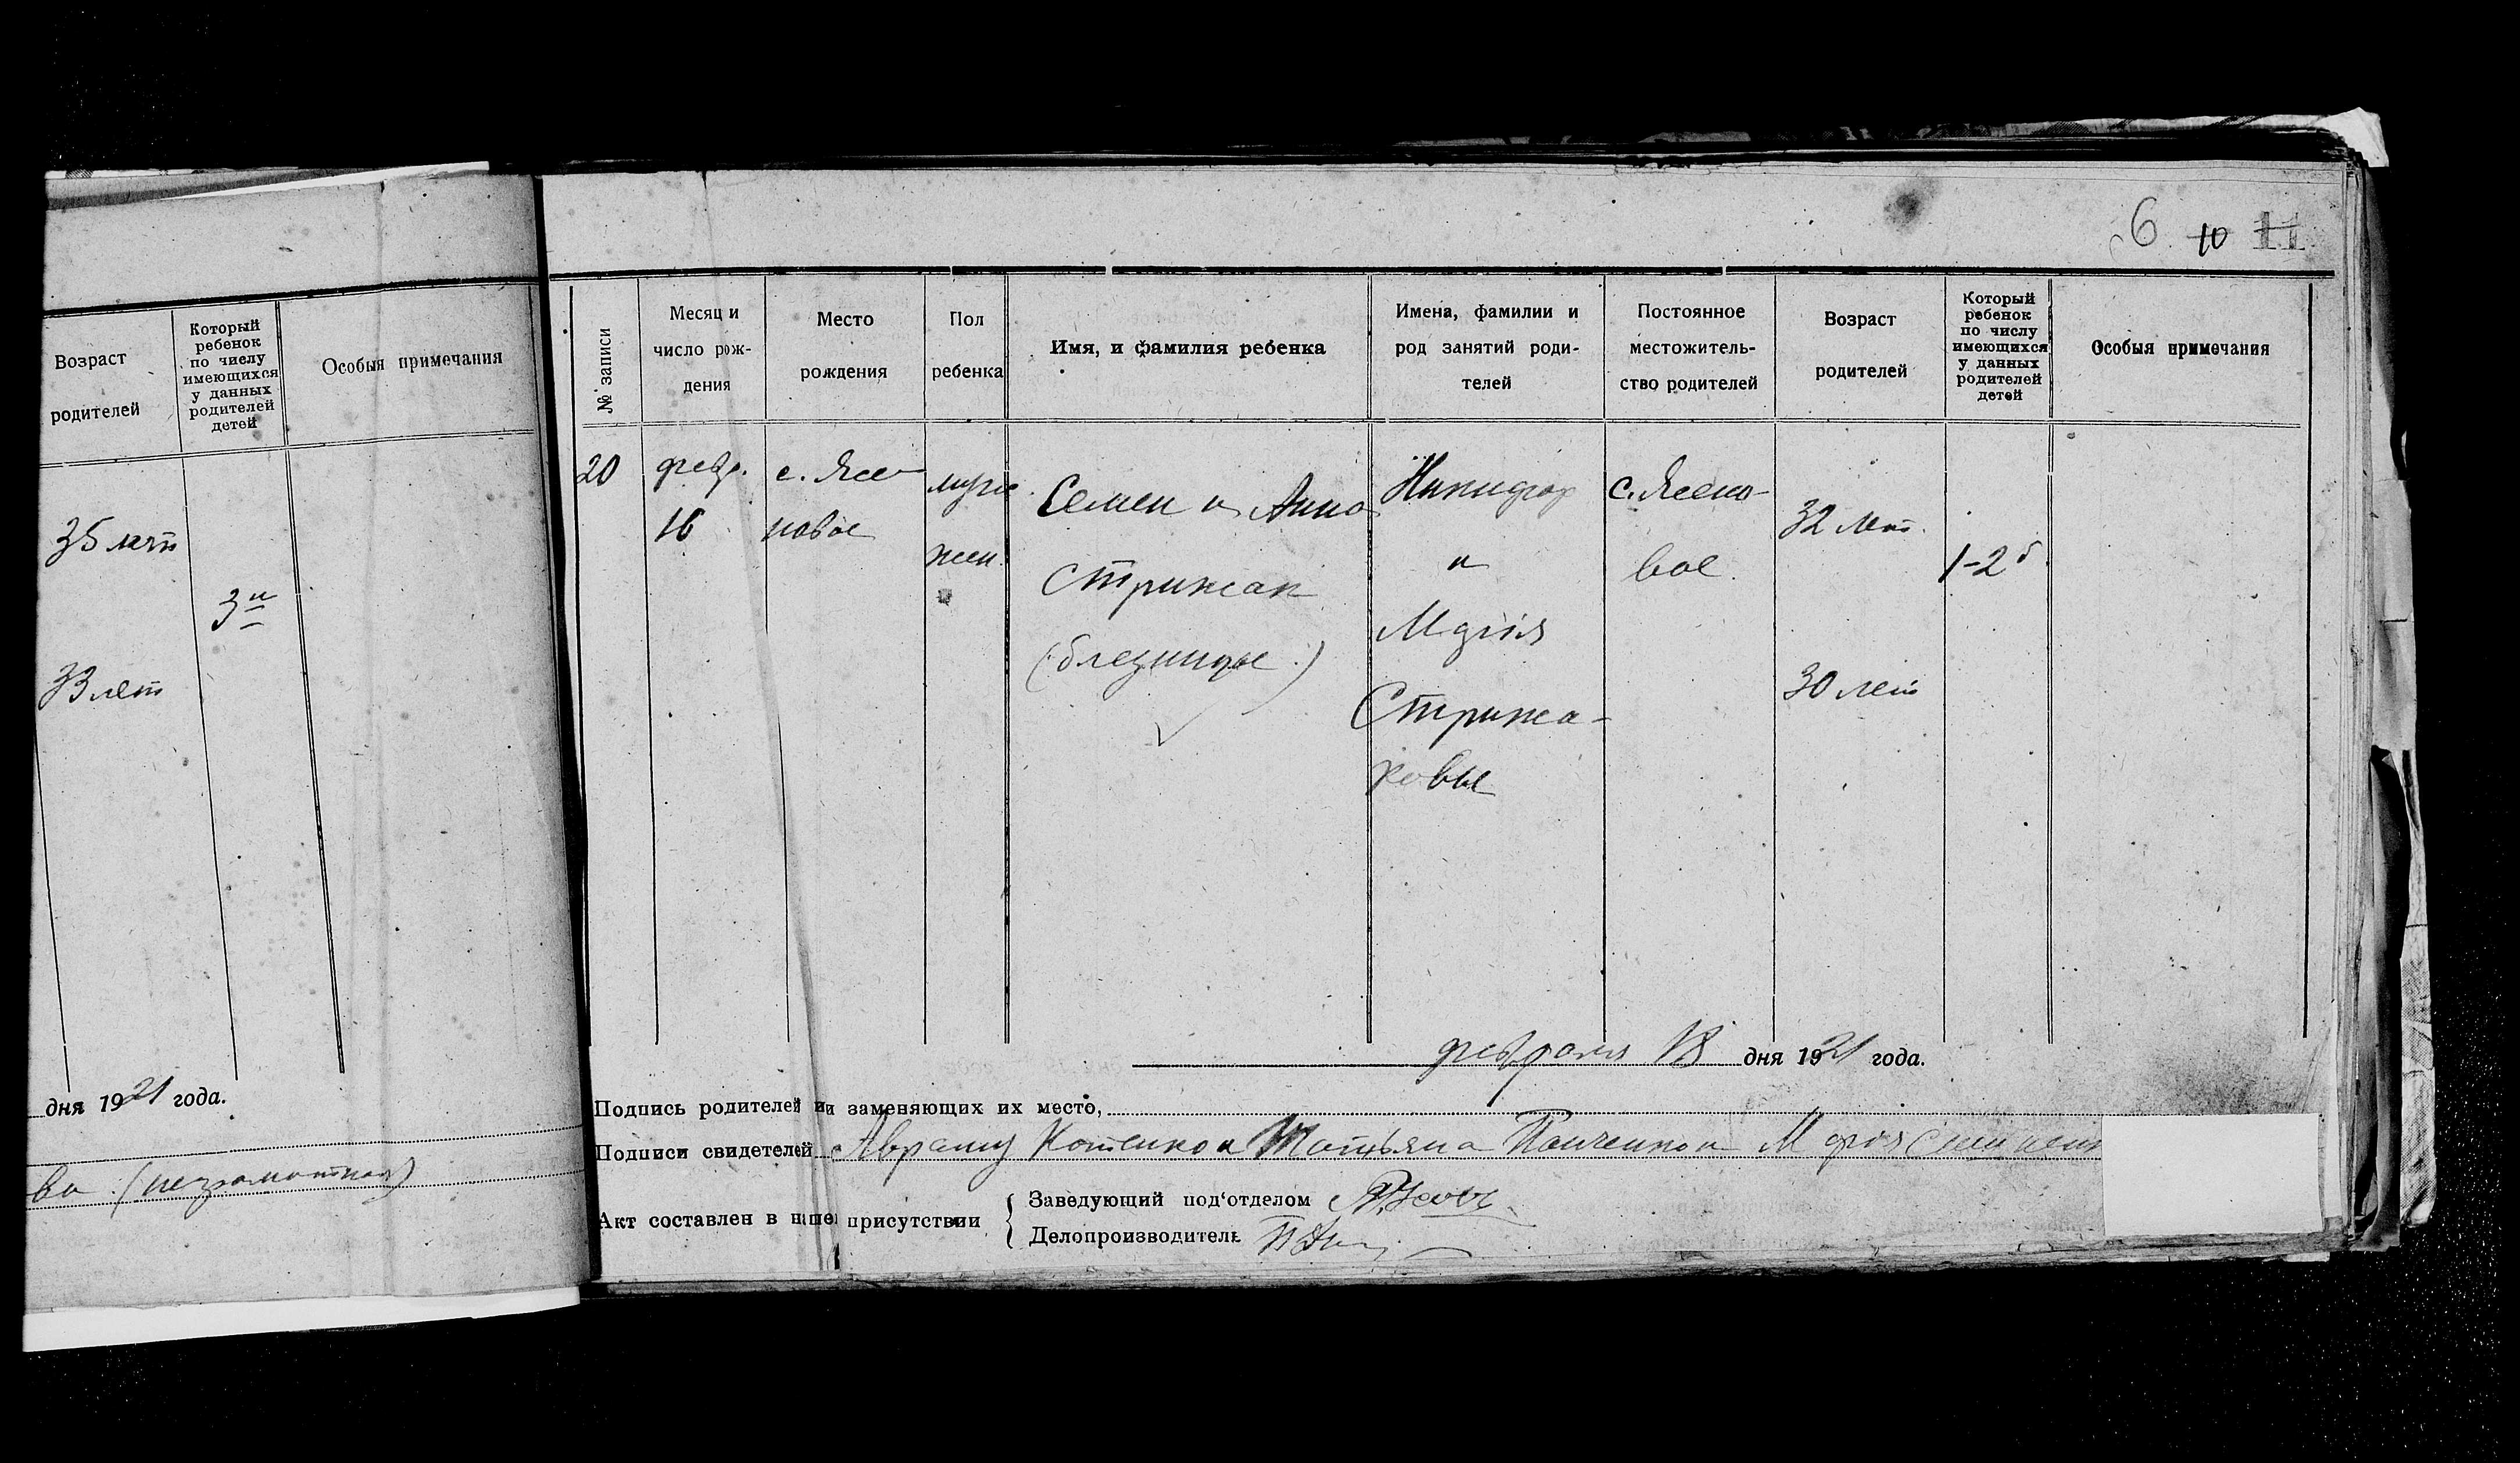 6 10 11
Возраст
родителей
Который
ребенок
по числу
имеющихся
у данных
родителей
детей
Особыя примечания
35 летъ
3й
33 лет
дня 1921 года.
ва (неграмотная)
№ записи
Месяц и
число рож-
дения
Место
рождения
Пол
ребенка
Имя, и фамилия ребенка
Имена, фамилии и
род занятий роди-
телей
Постоянное
местожитель-
ство родителей
Возраст
родителей
Который
ребенок
по числу
имеющихся
у данных
родителей
детей
Особыя примечания
20
февр.
16
с. Ясе-
новое
муж.
жен.
Семен и Анна
Стрижак
(близнецы)
Никифор
и
Марія
Стрижа-
ковы
с. Ясено-
вое.
32 лет.
30 лет
1-2й
февраля 18 дня 1921 года.
Подпись родителей или заменяющих их место,
Подписи свидетелей Котенко и Татьяна Панченко и Марія
Акт составлен в нашем присутствии
Заведующий под'отделом
Делопроизводитель